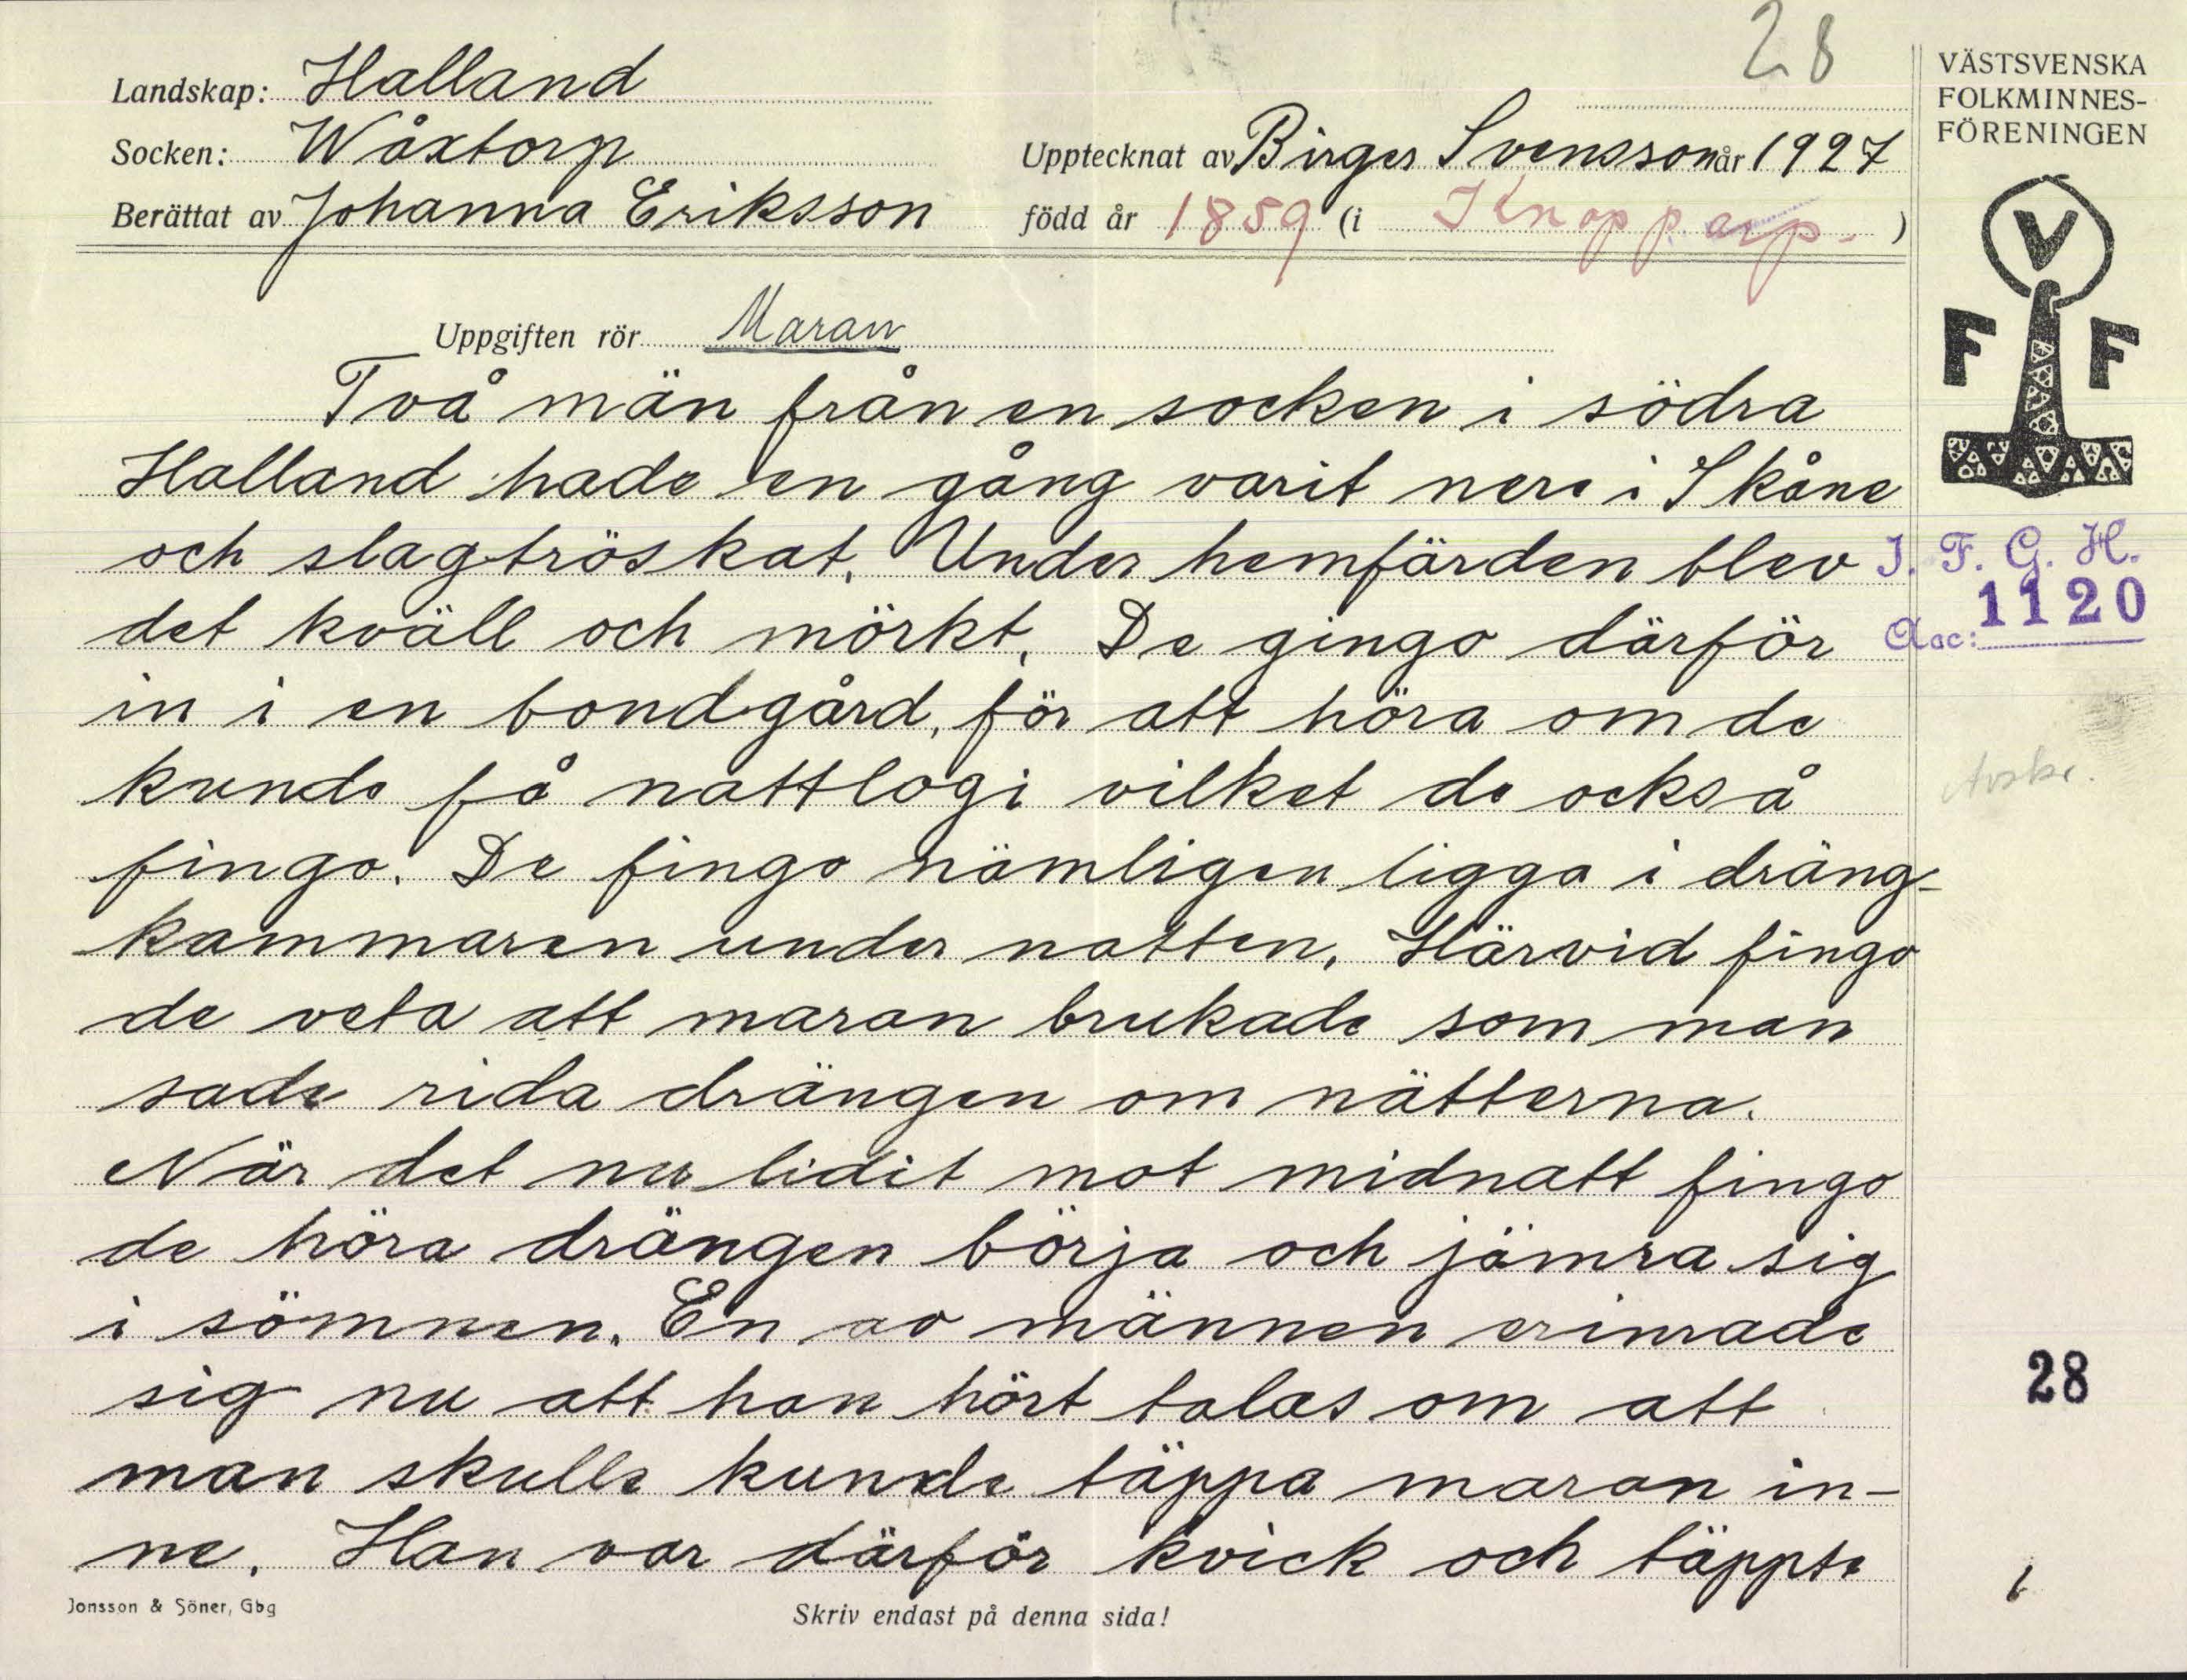 28
Landskap: Halland
Socken: Wåxtorp
Upptecknat av Birger Svensson år 1927
Berättat av Johanna Eriksson född år 1859 (i Knopparp. )
VÄSTSVENSKA
FOLKMINNES-
FÖRENINGEN
V
F F
Uppgiften rör Maran
Två män från en socken i södra
Halland hade en gång varit nere i Skåne
och slagtröskat. Under hemfärden blev
det kväll och mörkt. De gingo därför
in i en bondgård, för att höra om de
kunde få nattlogi vilket de också
fingo. De fingo nämligen ligga i dräng-
kammaren under natten. Härvid fingo
de veta att maran brukade som man
sade rida drängen om nätterna.
När det nu lidit mot midnatt fingo
de höra drängen börja och jämra sig
i sömnen. En av männen erinrade
sig nu att han hört talas om att
man skulle kunde täppa maran in-
ne. Han var därför kvick och täppte
I. F. G. H.
Acc: 1120
Avskr.
28
1
Jonsson & Söner, Gbg
Skriv endast på denna sida!